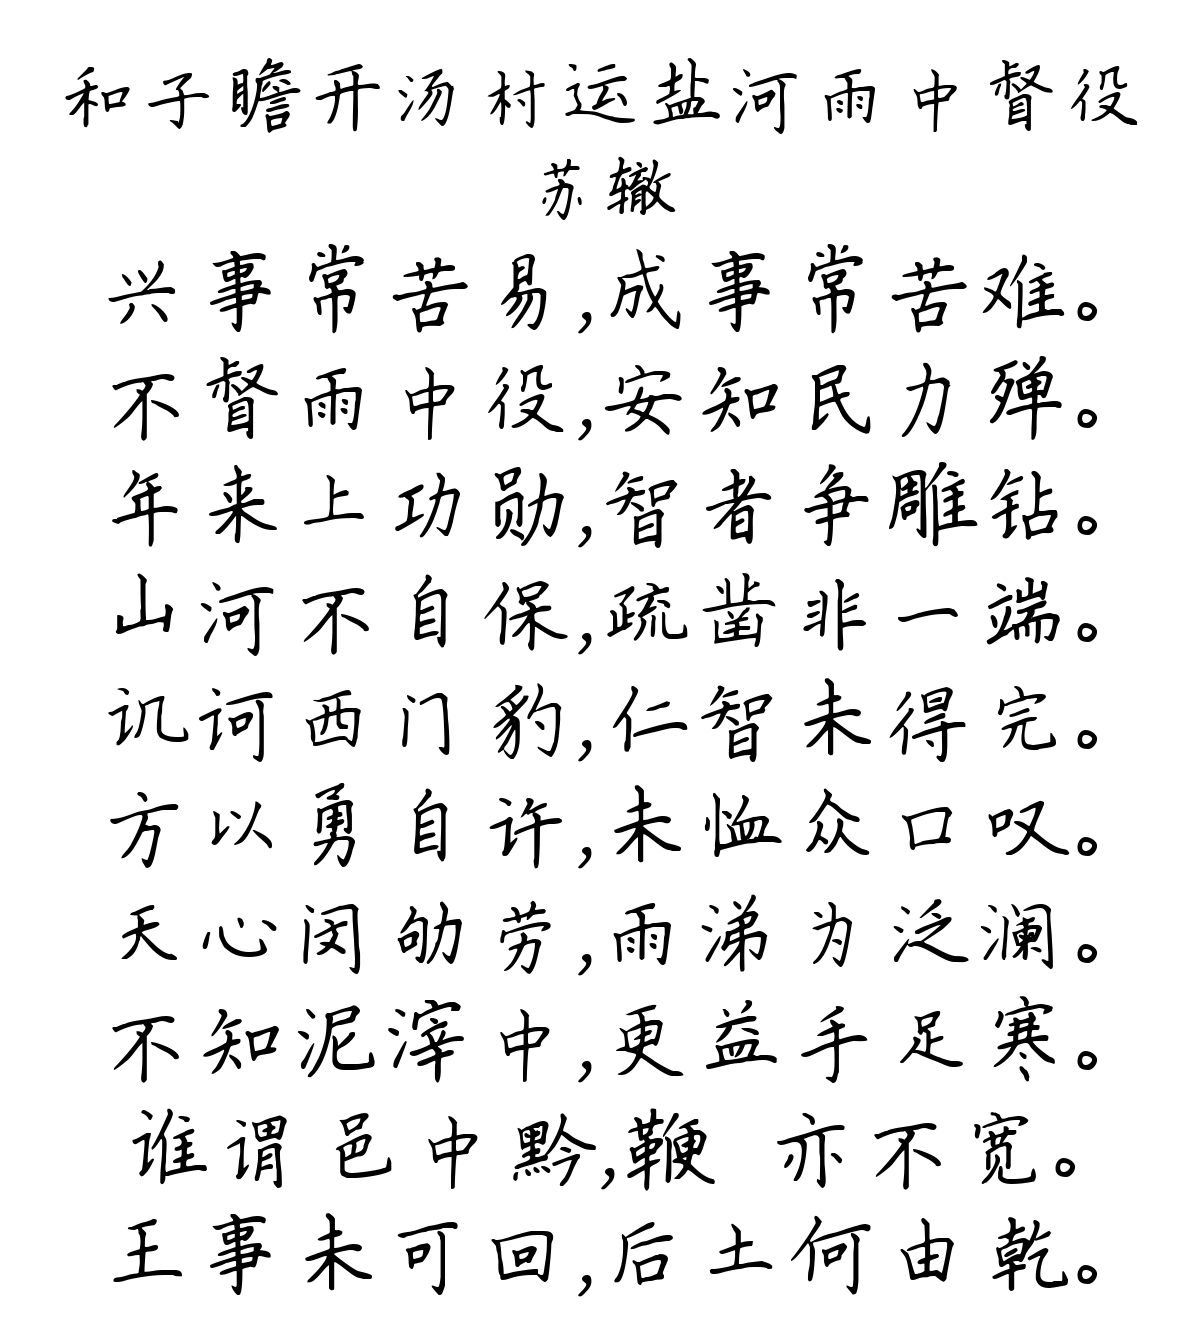 和子瞻开汤村运盐河雨中督役
苏辙
兴事常苦易,成事常苦难。
不督雨中役,安知民力殚。
年来上功勋,智者争雕钻。
山河不自保,疏凿非一端。
讥诃西门豹,仁智未得完。
方以勇自许,未恤众口叹。
天心闵劬劳,雨涕为泛澜。
不知泥滓中,更益手足寒。
谁谓邑中黔,鞭 亦不宽。
王事未可回,后土何由乾。